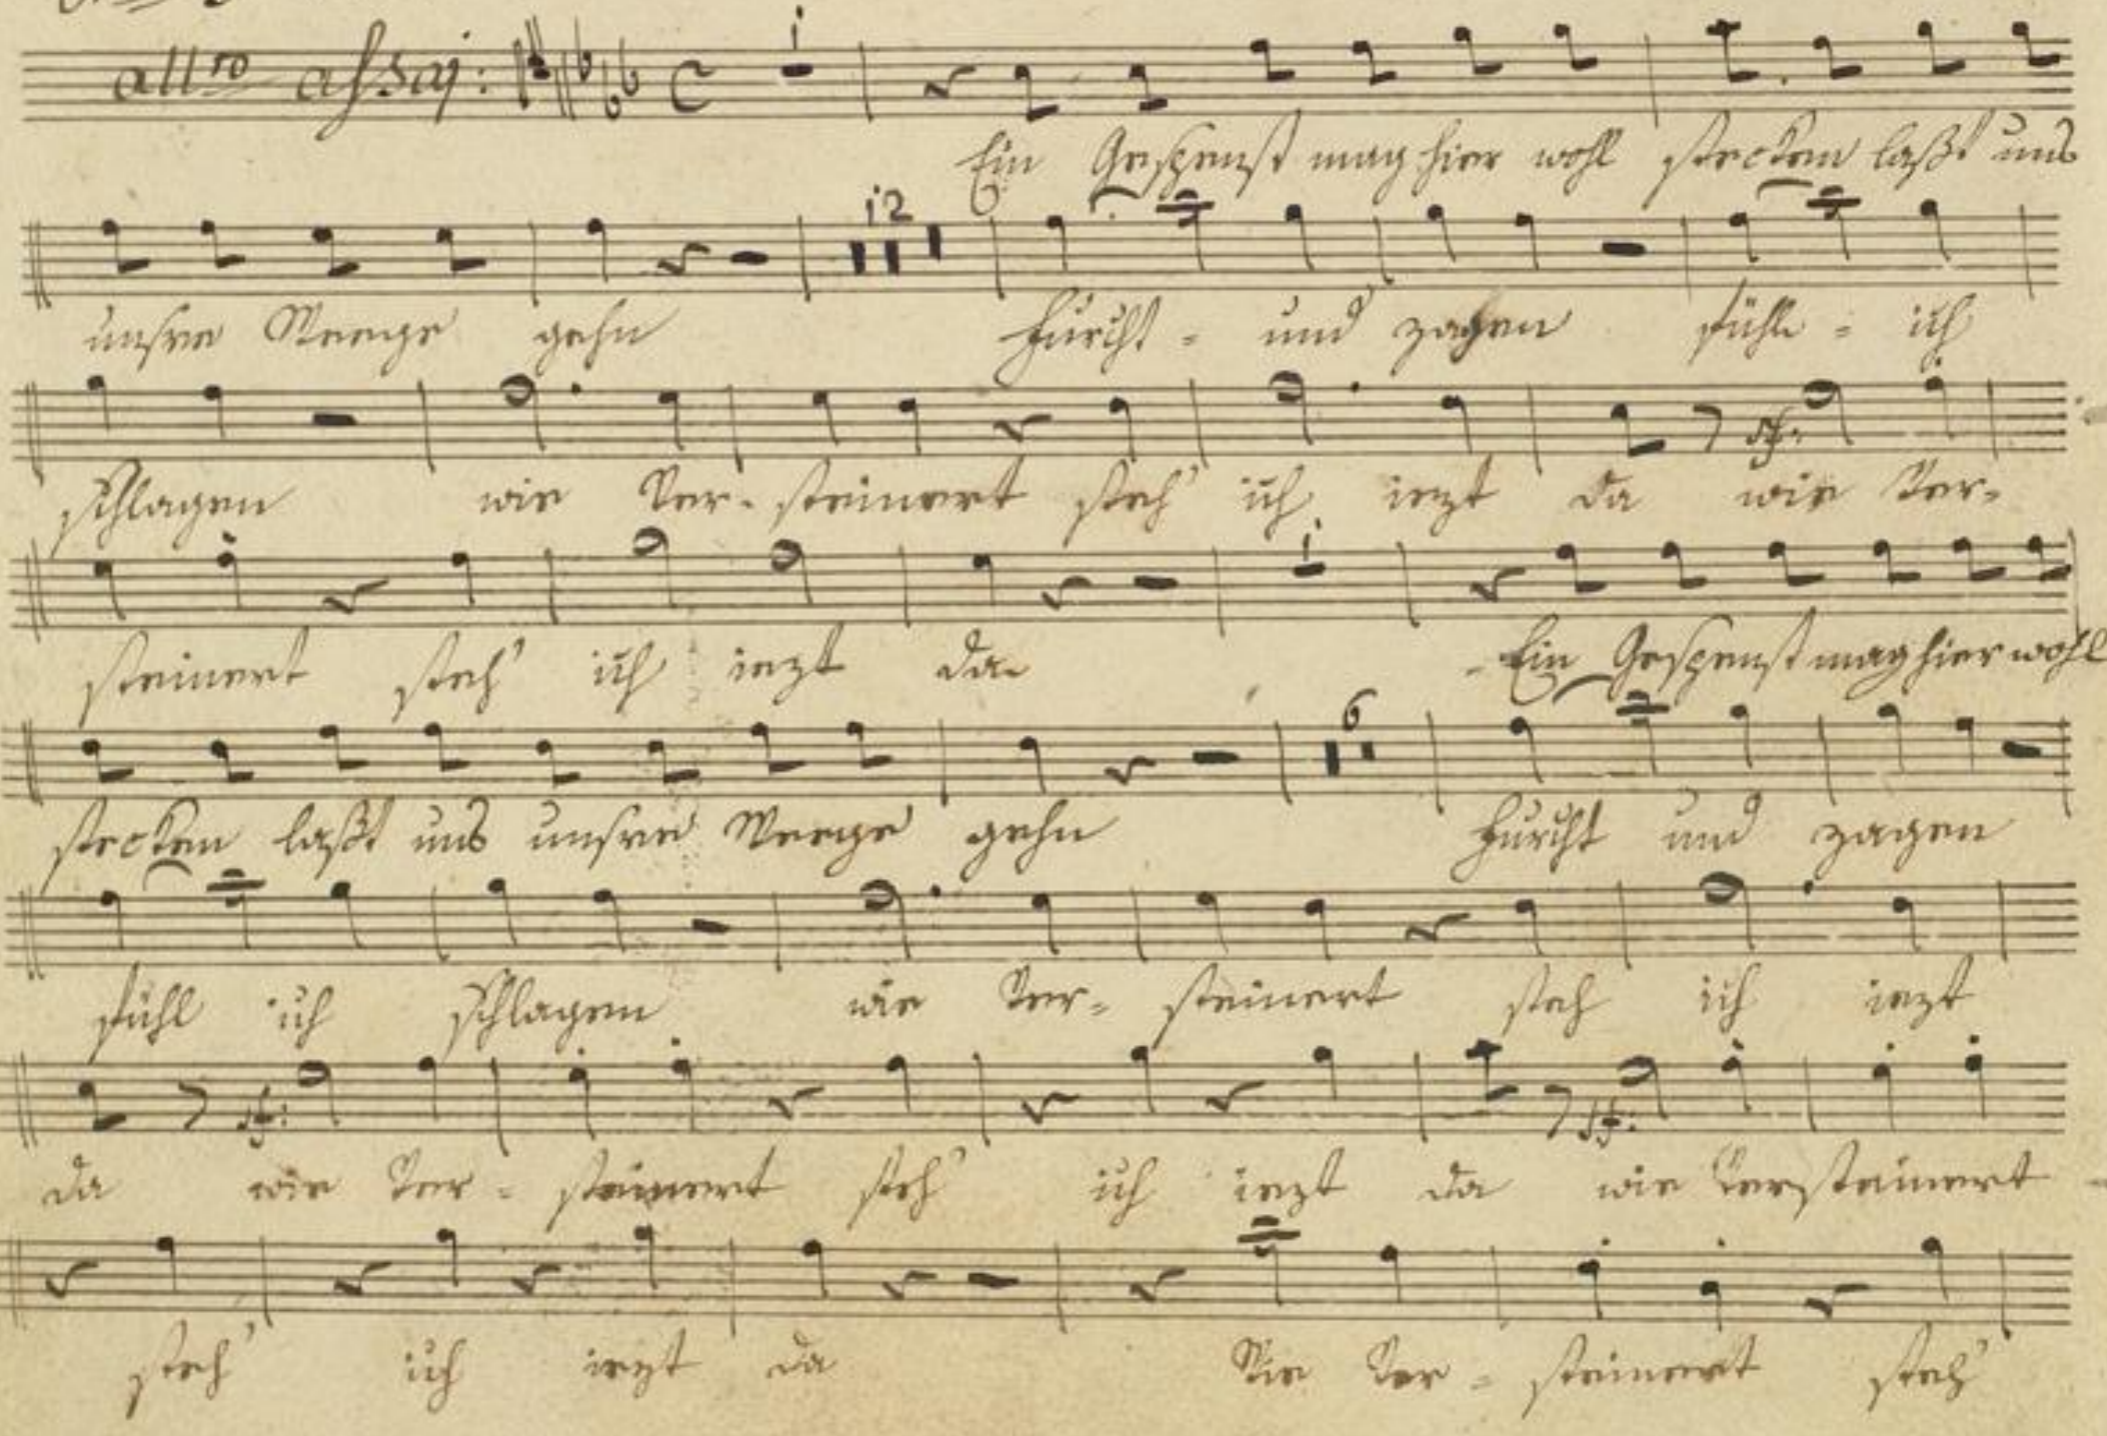 all:ro assaj:
1
Ein Gespenst mag hier wohl stecken laßt uns
12
unsre Weege gehn Furcht - und zagen fühl - ich
schlagen wie ver- steinert steh' ich iezt da wie ver-
sf:
1
steinert steh' ich iezt da Ein Gespenst mag hier wohl
6
stecken laßt uns unsre Weege gehn Furcht und zagen
fühl ich schlagen wie ver- steinert steh ich iezt
sf: sf:
da wie ver - steinert steh' ich iezt da wie versteinert
steh' ich iezt da Wie ver - steinert steh'